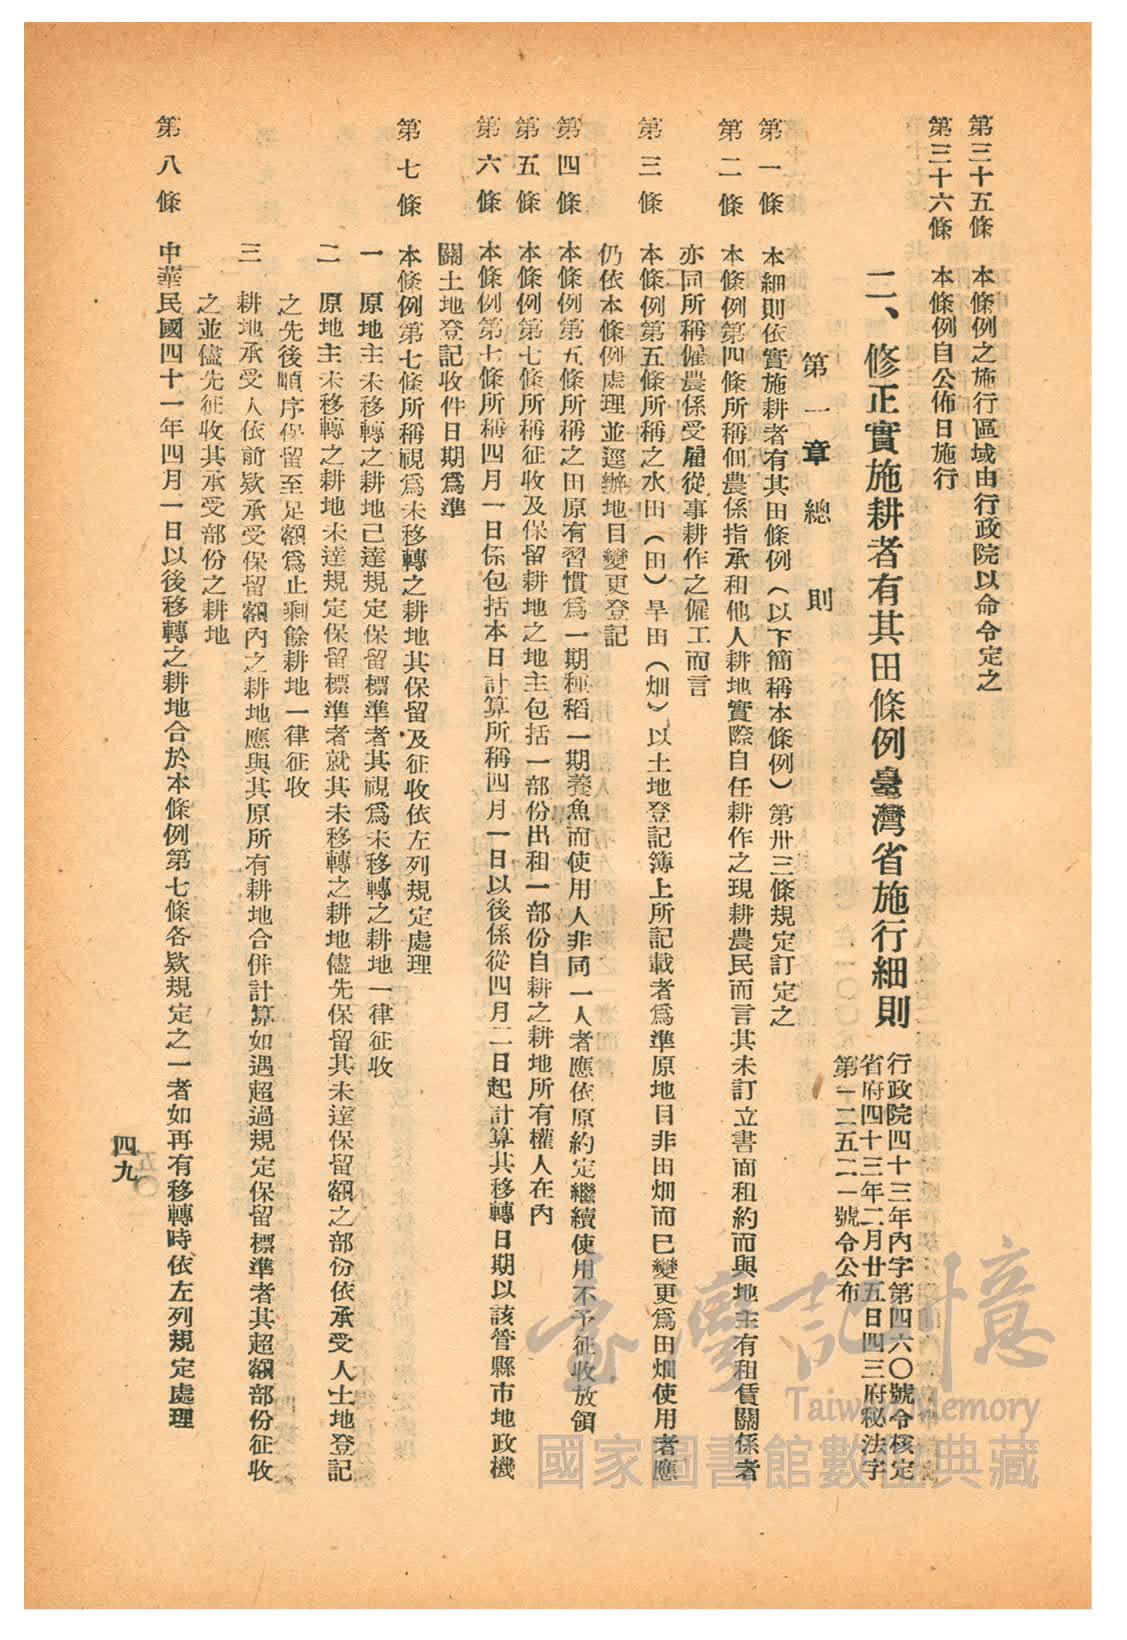 第三十五條　本條例之施行區域由行政院以命令定之
第三十六條　本條例自公佈日施行
二、修正實施耕者有其田條例臺灣省施行細則
行政院四十三年內字第四六〇號令核定
省府四十三年二月廿五日四三府秘法字
第一二五二一號令公布
第一章　總　則
第一條　本細則依實施耕者有其田條例（以下簡稱本條例）第卅三條規定訂定之
第二條　本條例第四條所稱佃農係指承租他人耕地實際自任耕作之現耕農民而言其未訂立書面租約而與地主有租賃關係者
亦同所稱僱農係受雇從事耕作之僱工而言
第三條　本條例第五條所稱之水田（田）旱田（畑）以土地登記簿上所記載者爲準原地目非田畑而已變更爲田畑使用者應
仍依本條例處理並逕辦地目變更登記
第四條　本條例第五條所稱之田原有習慣爲一期種稻一期養魚而使用人非同一人者應依原約定繼續使用不予征收放領
第五條　本條例第七條所稱征收及保留耕地之地主包括一部份出租一部份自耕之耕地所有權人在內
第六條　本條例第七條所稱四月一日係包括本日計算所稱四月一日以後係從四月二日起計算其移轉日期以該管縣市地政機
關土地登記收件日期爲準
第七條　本條例第七條所稱視爲未移轉之耕地其保留及征收依左列規定處理
一　原地主未移轉之耕地已達規定保留標準者其視爲未移轉之耕地一律征收
二　原地主未移轉之耕地未達規定保留標準者就其未移轉之耕地儘先保留其未達保留額之部份依承受人土地登記
之先後順序保留至足額爲止剩餘耕地一律征收
三　耕地承受人依前欵承受保留額內之耕地應與其原所有耕地合併計算如遇超過規定保留標準者其超額部份征收
之並儘先征收其承受部份之耕地
第八條　中華民國四十一年四月一日以後移轉之耕地合於本條例第七條各欵規定之一者如再有移轉時依左列規定處理
四九
臺灣記憶
Taiwan Memory
國家圖書館數位典藏